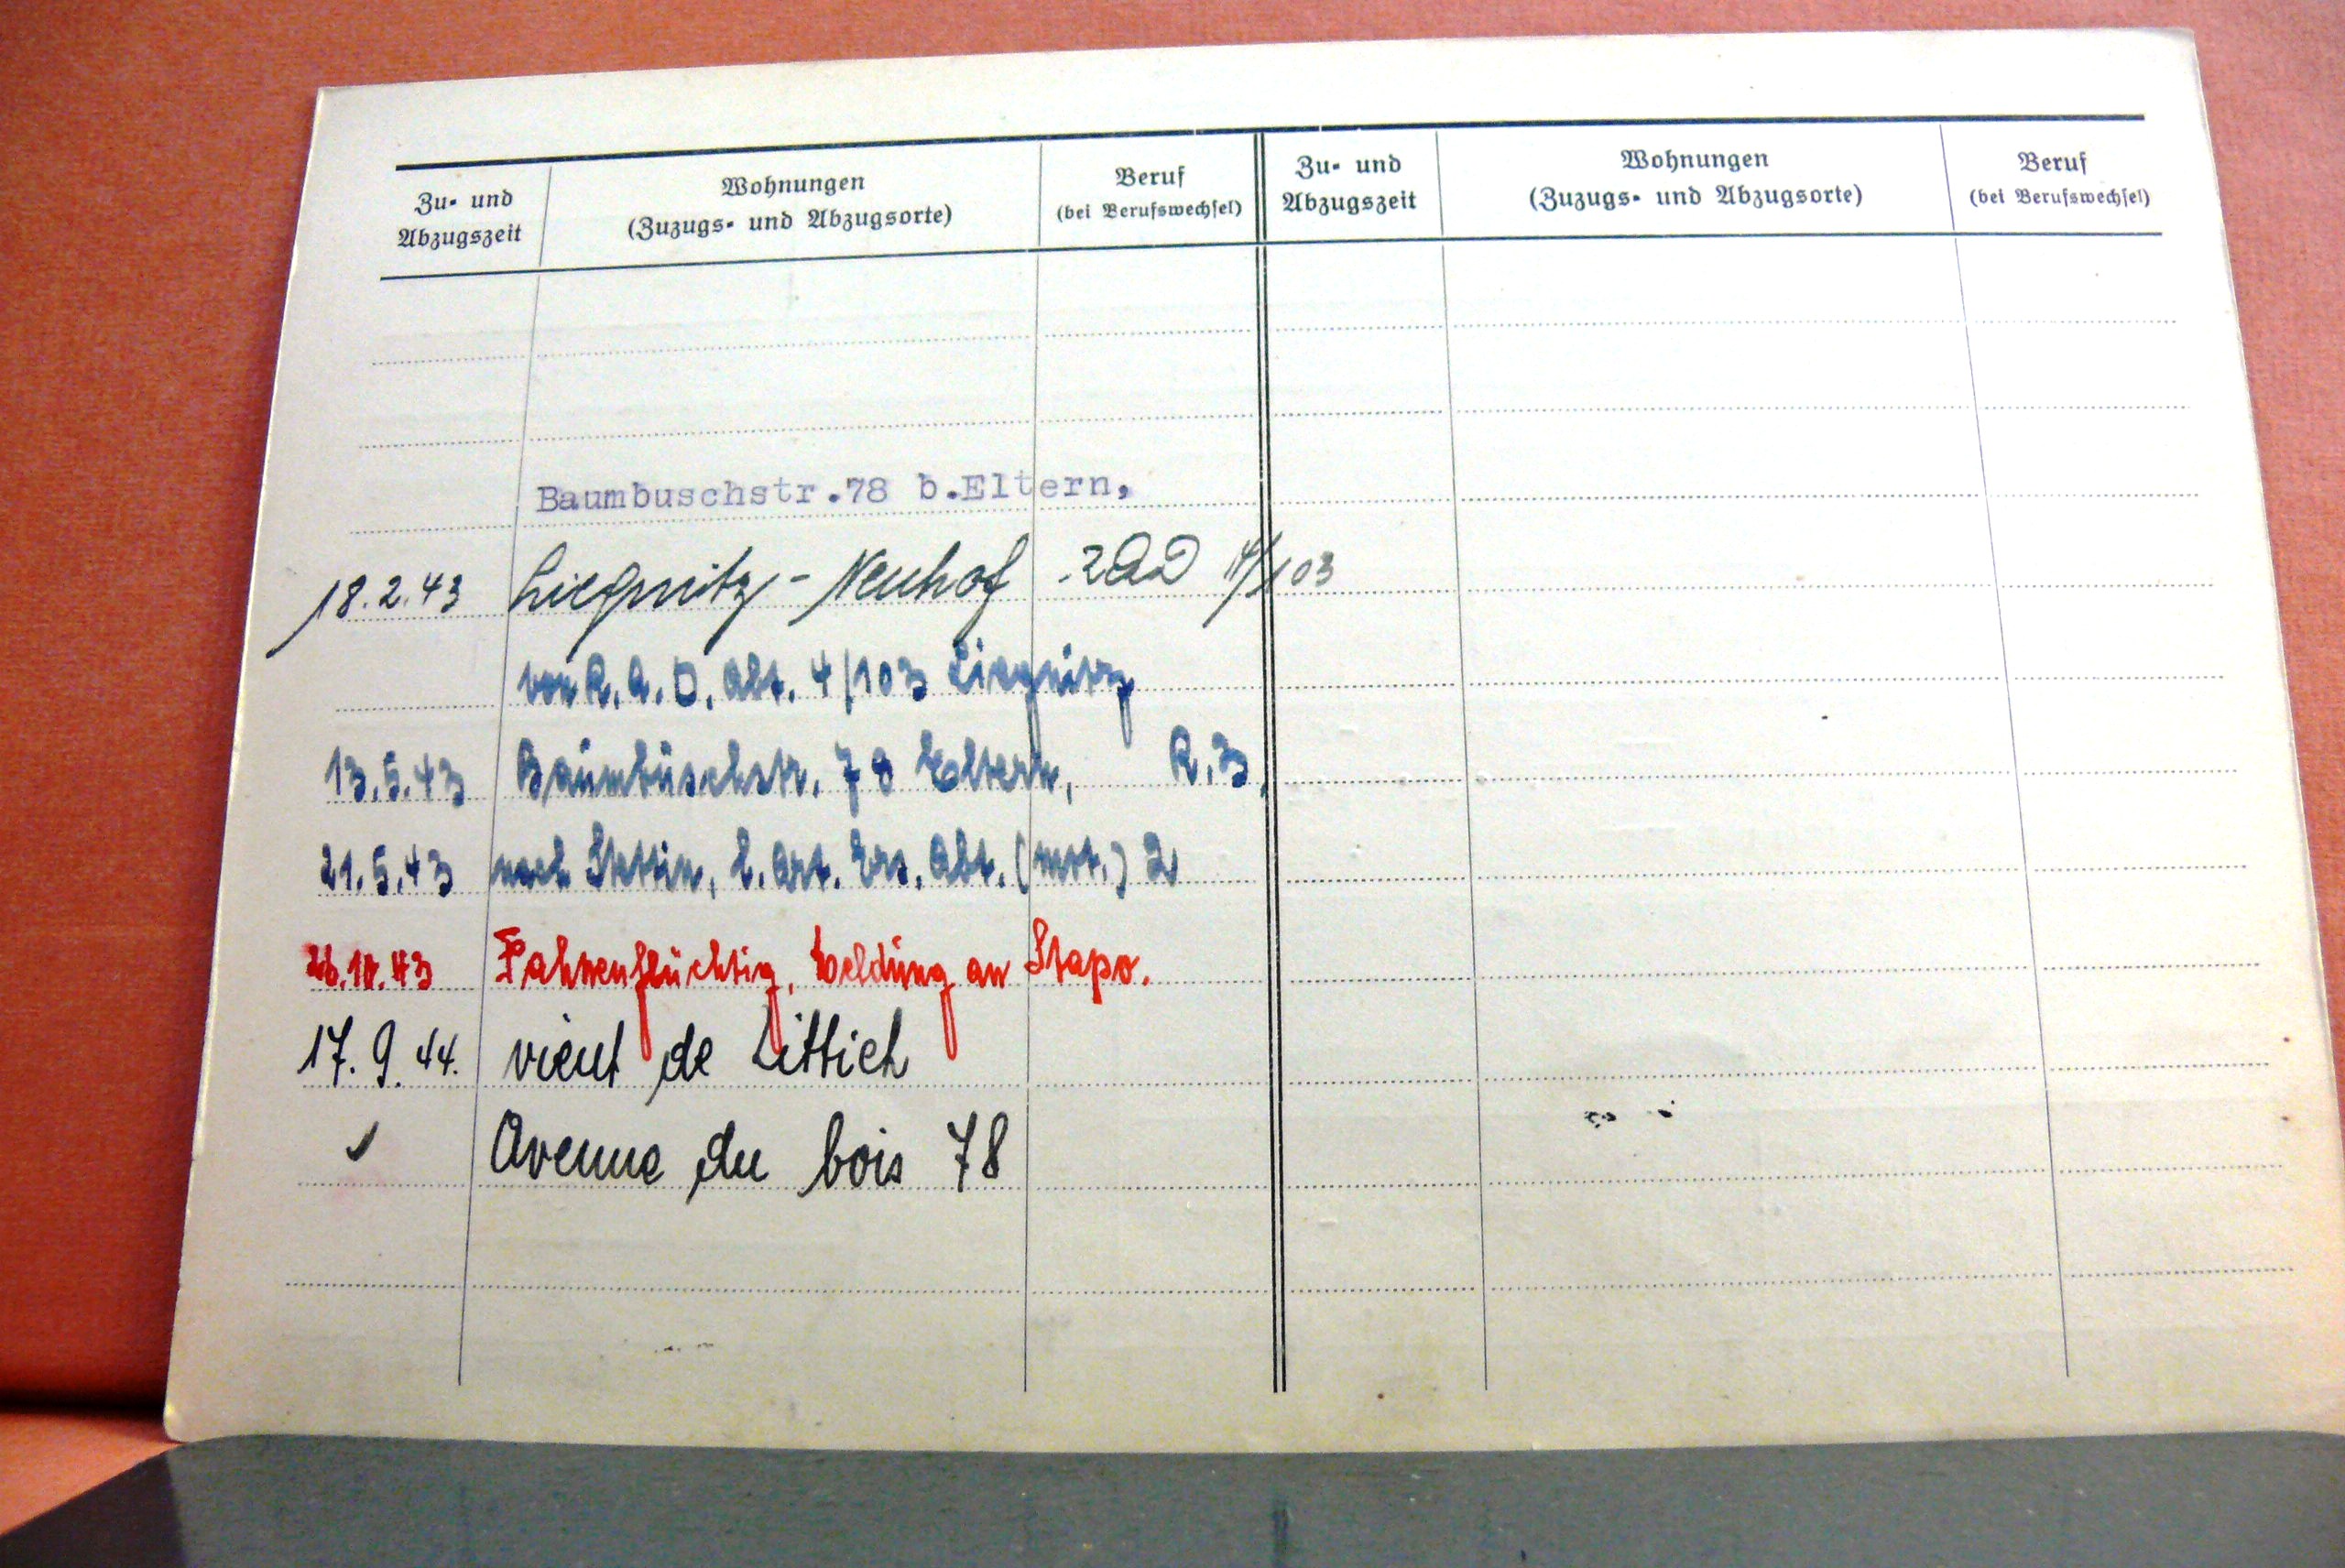 Zu- und Abzugszeit
Wohnungen (Zuzugs- und Abzugsorte)
Beruf (bei Berufswechsel)
Zu- und Abzugszeit
Wohnungen (Zuzugs- und Abzugsorte)
Beruf (bei Berufswechsel)
Baumbuschstr.78 b.Eltern,
18.2.43 Liegnitz - Neuhof RAD 4/103
von R.A.D. Abt. 4/103 Liegnitz
13.5.43 Baumbuschstr. 78 Eltern, R.3,
21.5.43 nach Stettin, l. Art. Ers. Abt. (mot.) 2
43 Fahnenflüchtig, Meldung an Stapo.
17.9.44. vient de Littich
Avenue du bois 78